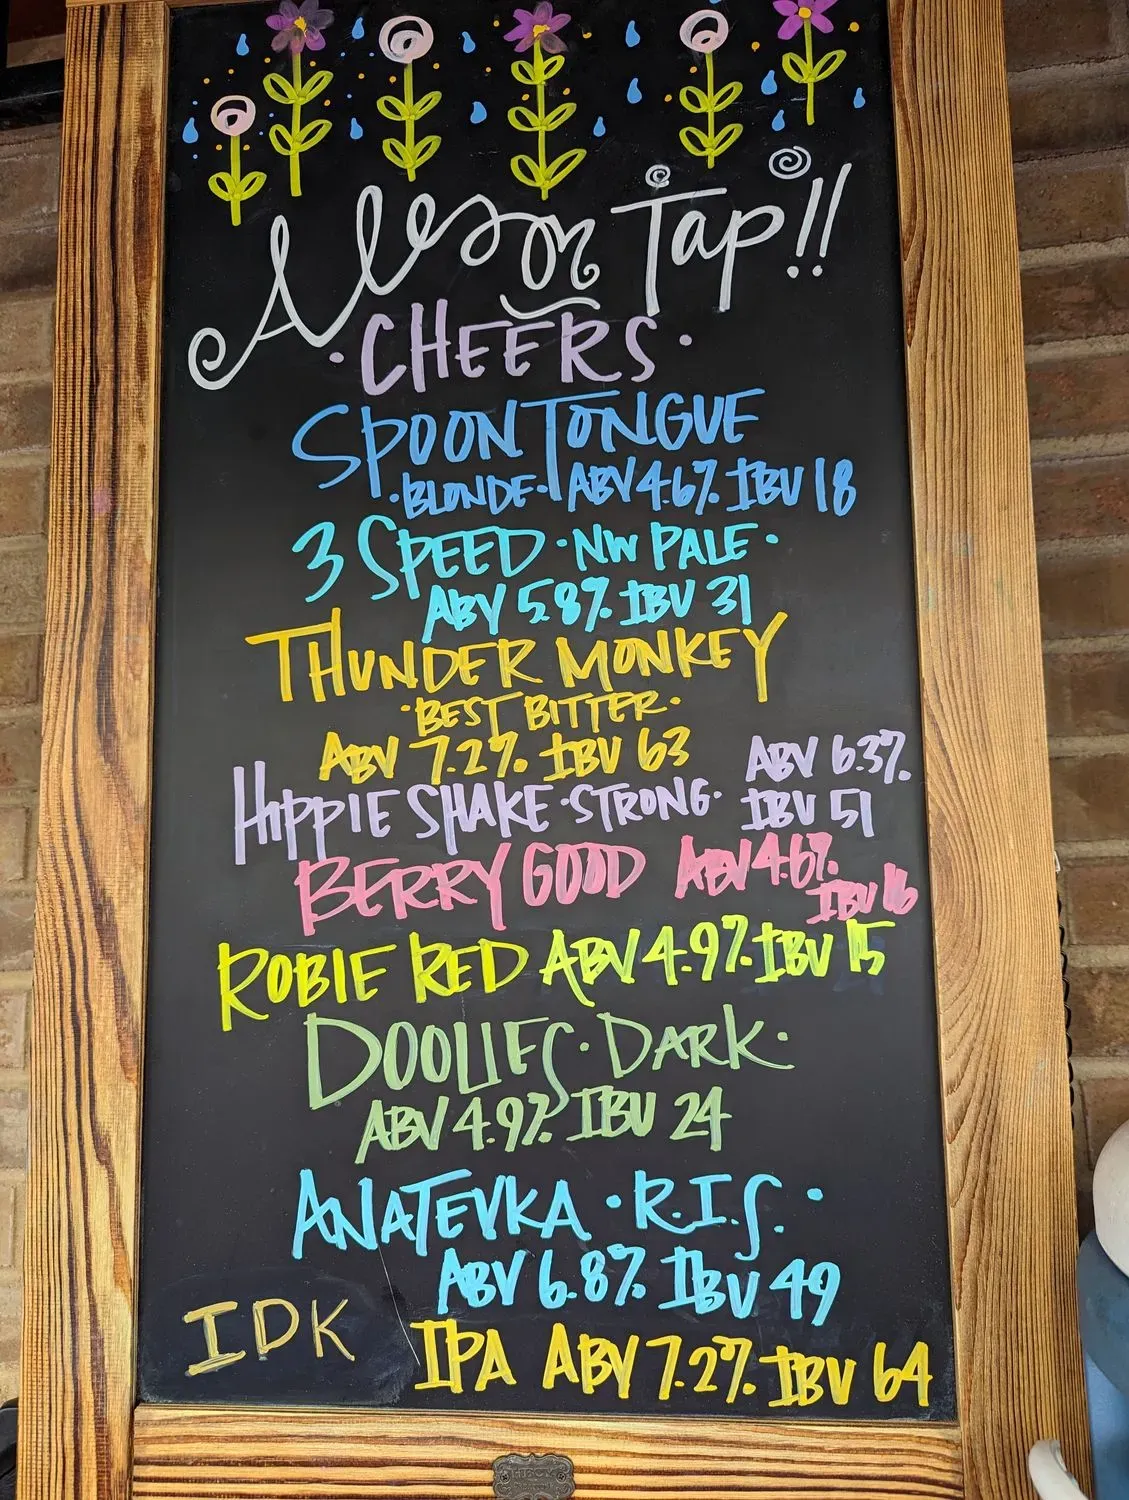 Ales on Tap!!
·CHEERS·
SPOON TONGUE
·BLONDE· ABV 4.6% IBU 18
3 SPEED ·NW PALE·
ABV 5.8% IBU 31
THUNDER MONKEY
·BEST BITTER·
ABV 7.2% IBU 63
HIPPIE SHAKE ·STRONG· ABV 6.3%
IBU 51
BERRY GOOD ABV 4.6%
IBU 16
ROBIE RED ABV 4.9% IBU 15
DOOLIES · DARK·
ABV 4.9% IBU 24
ANATEVKA · R.I.S. ·
ABV 6.8% IBU 49
IDK IPA ABV 7.2% IBU 64